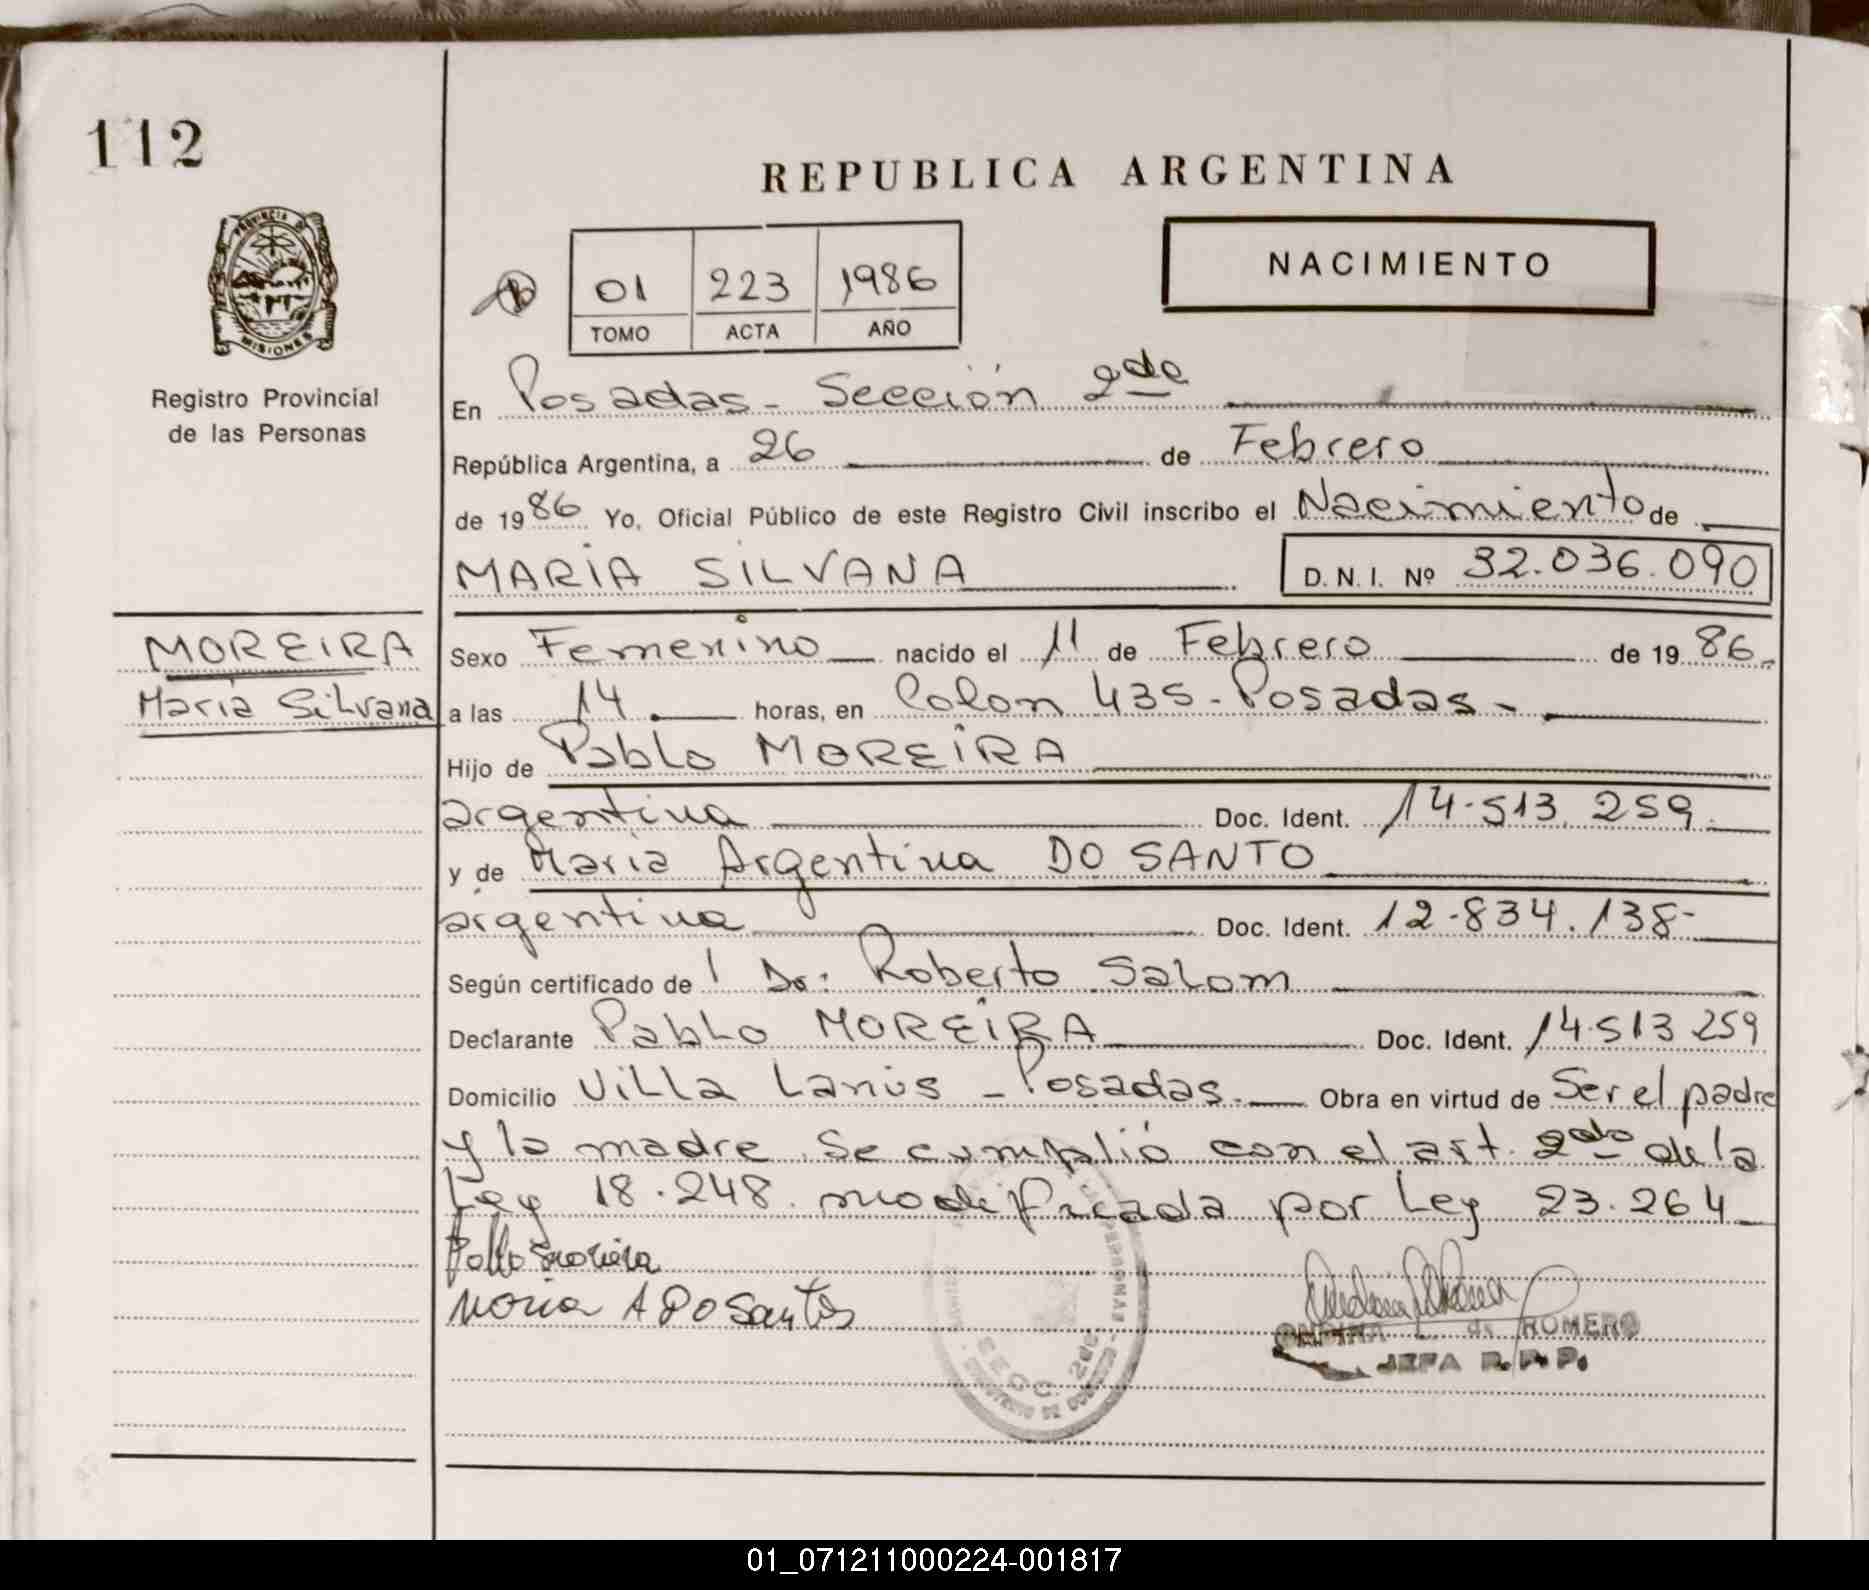 112
REPUBLICA ARGENTINA
PROVINCIA DE
MISIONES
Registro Provincial
de las Personas
NACIMIENTO
01 223 1986
TOMO ACTA AÑO
En Posadas - Sección 2da
República Argentina, a 26 de Febrero
de 1986 Yo, Oficial Público de este Registro Civil inscribo el Nacimiento de
MARIA SILVANA D. N. I. Nº 32.036.090
MOREIRA
Maria Silvana
Sexo Femenino nacido el 11 de Febrero de 1986.
a las 14. horas, en Colon 435 - Posadas -
Hijo de Pablo MOREIRA
argentina Doc. Ident. 14.513.259
y de Maria Argentina DO SANTO
argentina Doc. Ident. 12.834.138-
Según certificado de Dr. Roberto Salom
Declarante Pablo MOREIRA Doc. Ident. 14.513 259
Domicilio Villa Lanús - Posadas. Obra en virtud de Ser el padre
y la madre. Se cumplió con el art. 2do de la
Ley 18.248. modificada por Ley 23.264
Pablo Moreira
Maria A DO Santos
SECC. 2da
ONDINA de ROMERO
JEFA R. P. P.
01_071211000224-001817